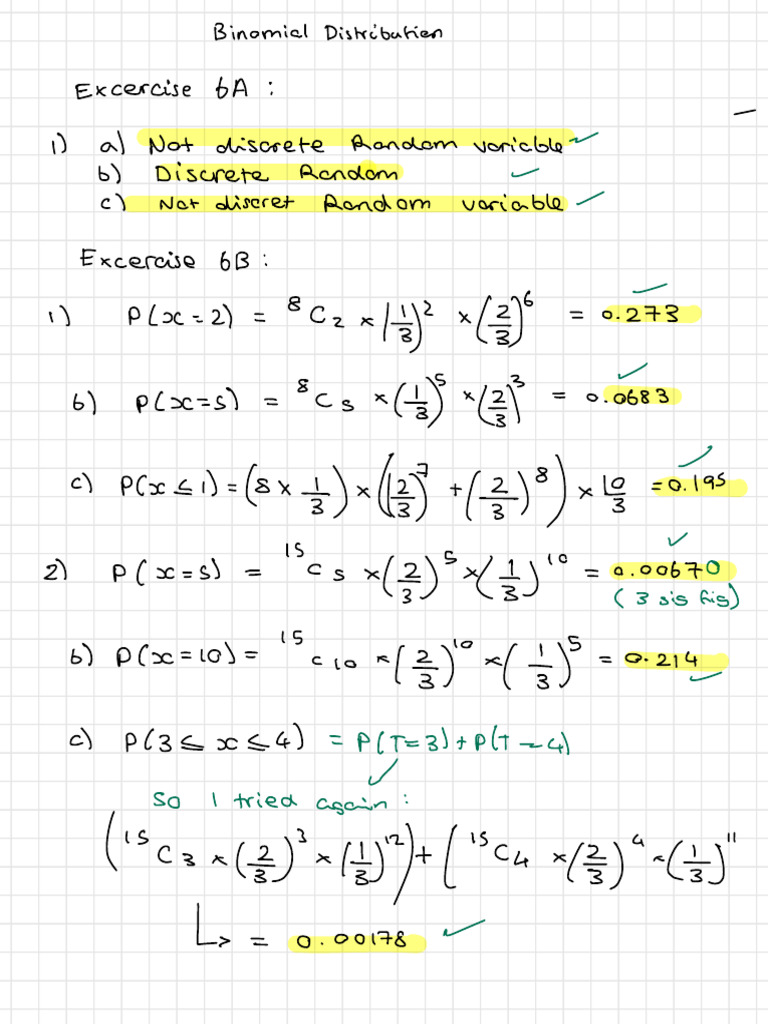 Binomial Distribution
Excercise 6A :
1) a) Not discrete Random variable ✓
b) Discrete Random ✓
c) Not discret Random variable ✓
Excercise 6B :
1) P(x=2) = ⁸C₂ × (1/3)² × (2/3)⁶ = 0.273 ✓
b) P(x=5) = ⁸C₅ × (1/3)⁵ × (2/3)³ = 0.0683 ✓
c) P(x ≤ 1) = (8 × 1/3) × ((2/3)⁷ + (2/3)⁸) × 10/3 = 0.195 ✓
2) P(x=5) = ¹⁵C₅ × (2/3)⁵ × (1/3)¹⁰ = 0.00670 ✓
(3 sig figs)
b) P(x=10) = ¹⁵C₁₀ × (2/3)¹⁰ × (1/3)⁵ = 0.214 ✓
c) P(3 ≤ x ≤ 4) = P(T=3) + P(T=4) ✓
So I tried again :
(¹⁵C₃ × (2/3)³ × (1/3)¹²) + (¹⁵C₄ × (2/3)⁴ × (1/3)¹¹
↳ = 0.00178 ✓